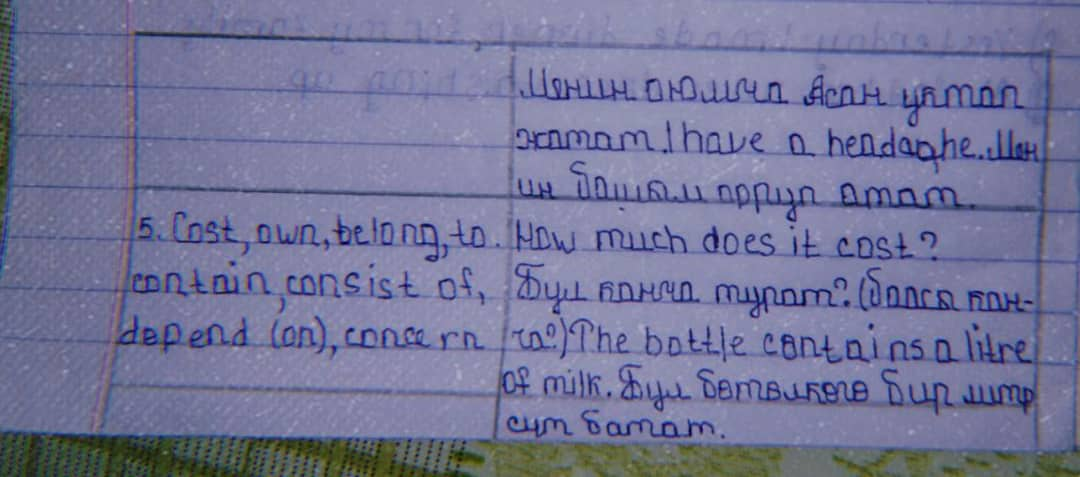 Менин оюмча Асан уктап
жатат. I have a headaqhe. Мен
ин башым ооруп атат.
5. Cost, own, belong, to.
contain, consist of,
depend (on), concern
How much does it cost?
Бул канча турат? (баасы кан-
ча?) The bottle contains a litre
of milk. Бул бөтөлкөгө бир литр
сүт батат.